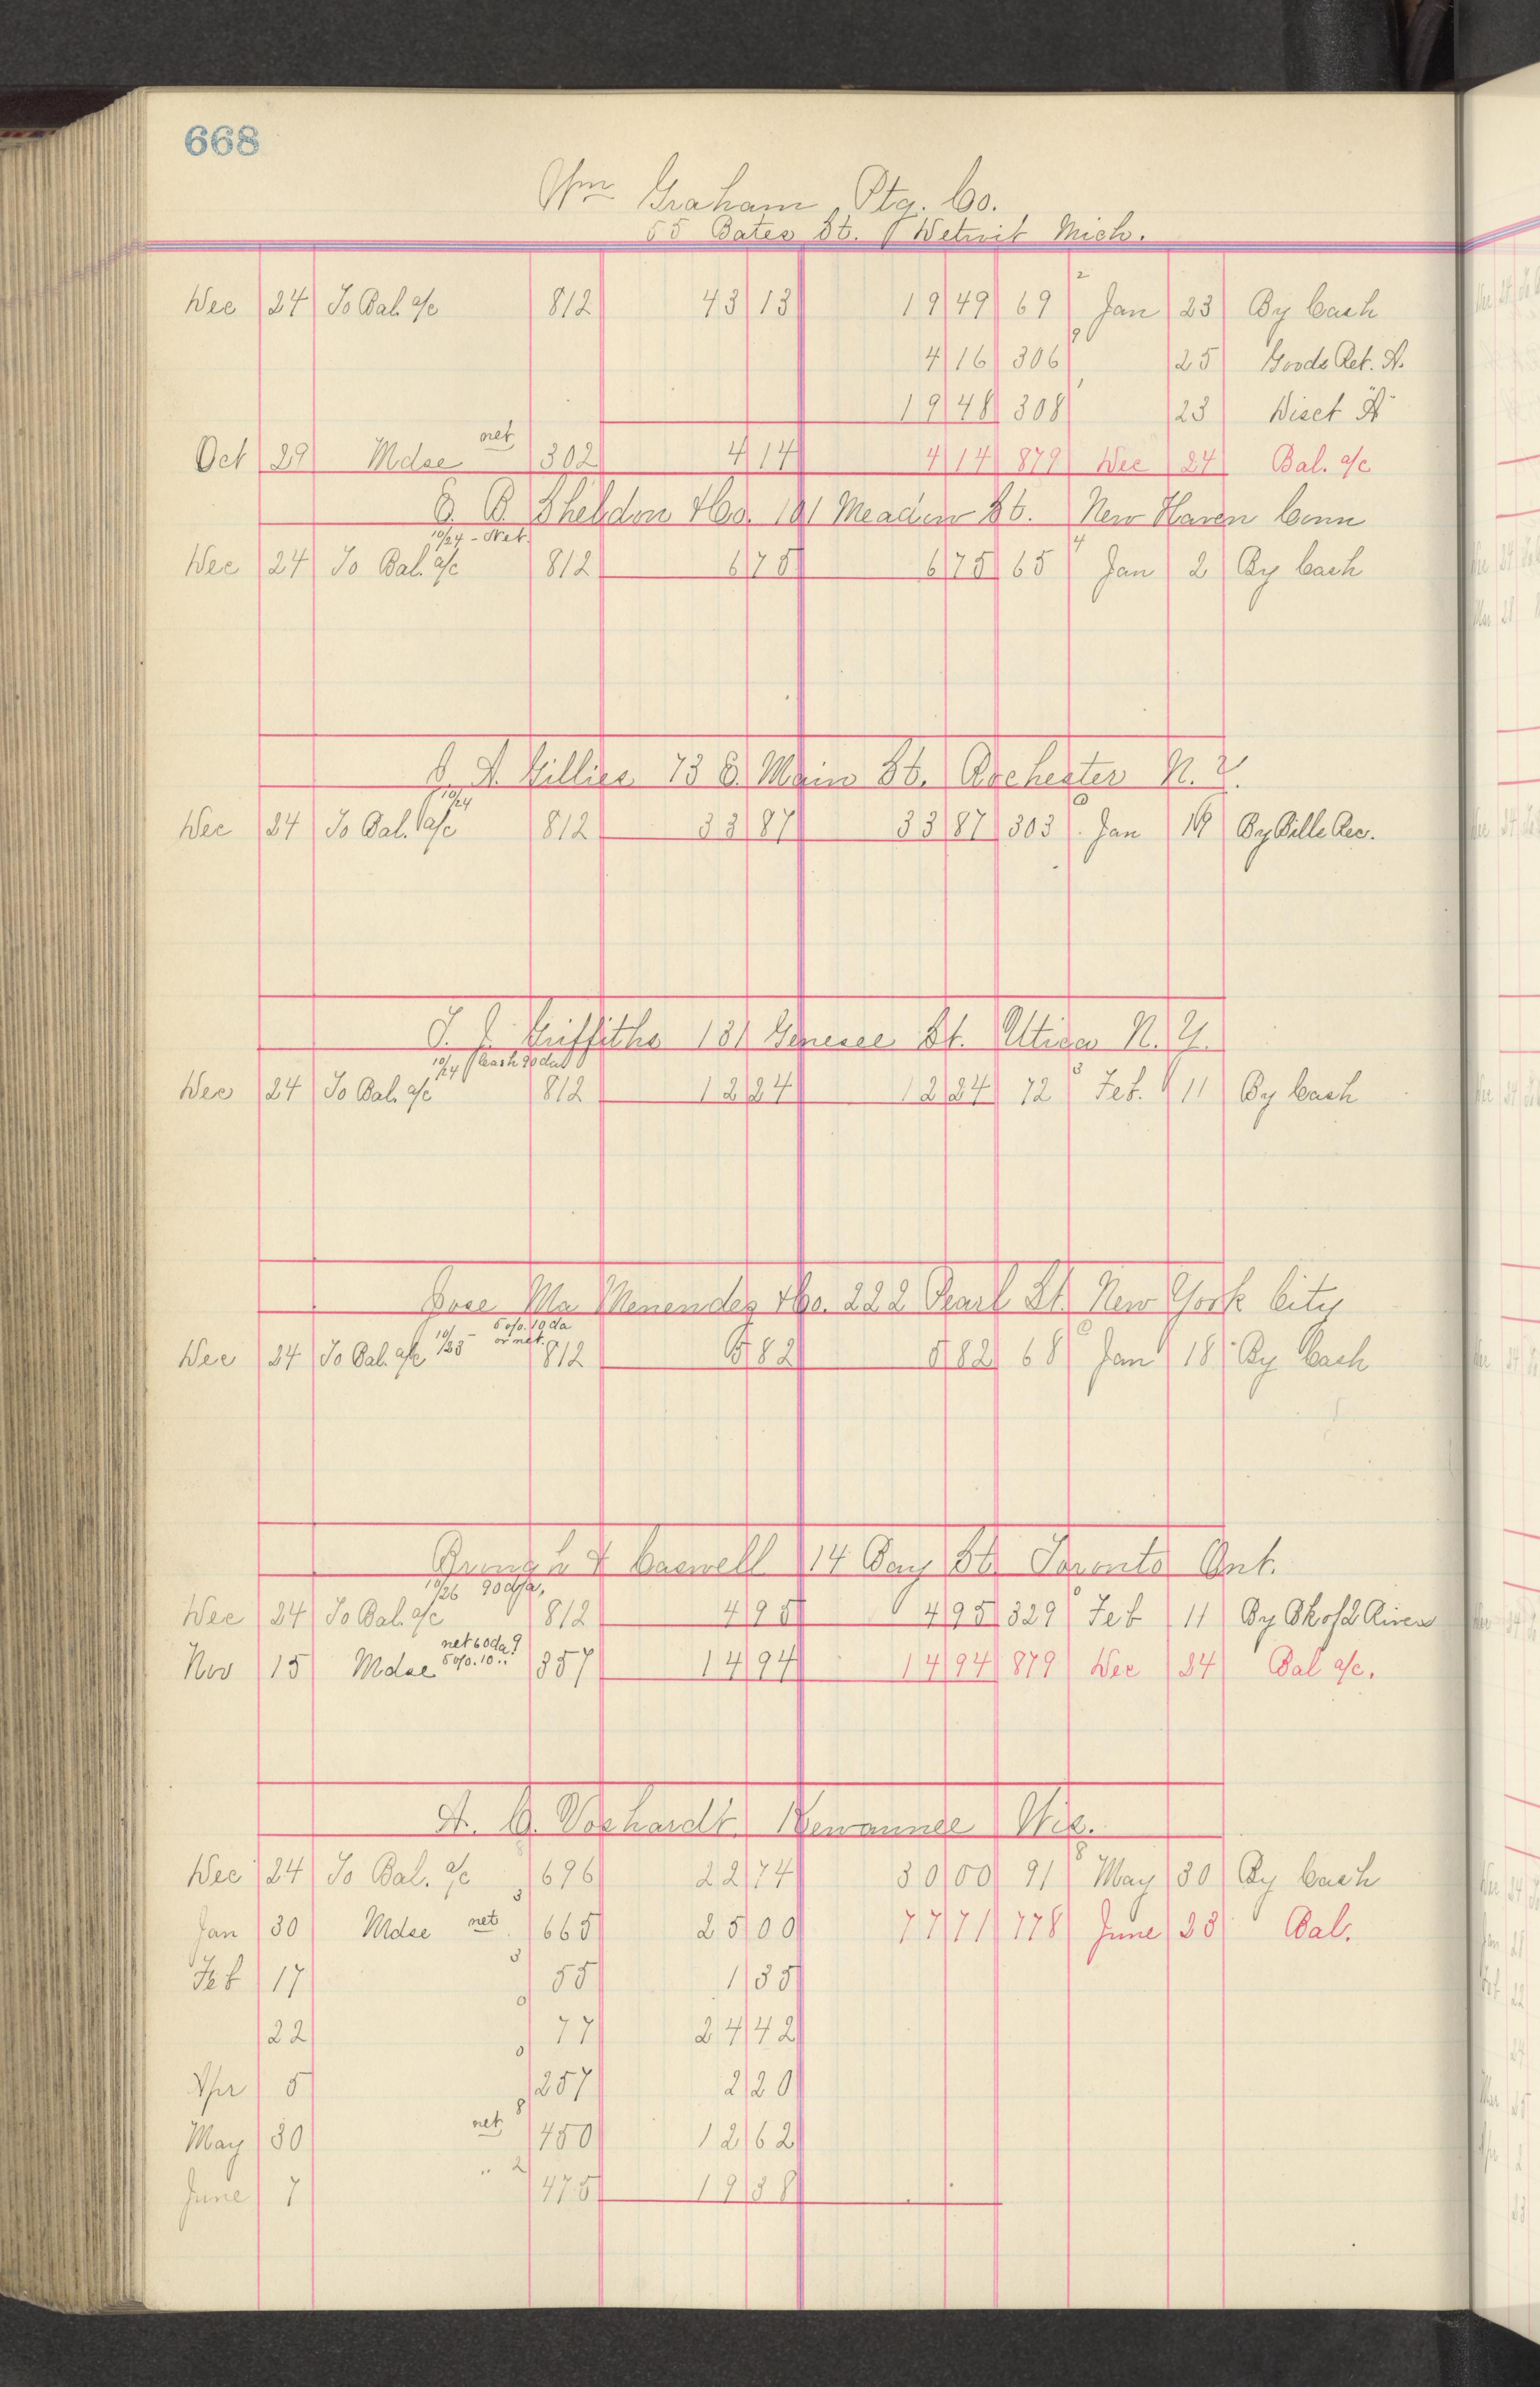 668
Wm Graham Ptg. Co.
55 Bates St. Detroit Mich.
Dec 24 To Bal. a/c 812 43 13 19 49 69 2 Jan 23 By Cash
4 16 306 9 25 Goods Ret. A.
19 48 308 1 23 Disct "A"
Oct 29 Mdse net 302 4 14 4 14 879 Dec 24 Bal. a/c
E. B. Sheldon & Co. 101 Meadow St. New Haven Conn
10/24 - Net.
Dec 24 To Bal. a/c 812 6 75 6 75 65 4 Jan 2 By Cash
A. Gillies 73 E. Main St. Rochester N. Y.
10/24
Dec 24 To Bal. a/c 812 33 87 33 87 303 Jan 19 By Bills Rec.
T. J. Griffiths 131 Genesee St. Utica N. Y.
10/24 Cash 90 das
Dec 24 To Bal. a/c 812 12 24 12 24 72 3 Feb. 11 By Cash
Jose Ma Menendez & Co. 222 Pearl St. New York City
10/25 - 5 o/o. 10 da or net.
Dec 24 To Bal. a/c 812 5 82 5 82 68 Jan 18 By Cash
& Caswell 14 Bay St. Toronto Ont.
10/26 90 d/a,
Dec 24 To Bal. a/c 812 4 95 4 95 329 Feb 11 By Bk of 2 Rivers
Nov 15 Mdse net 60 da 5 o/o. 10 .. 9 357 14 94 14 94 879 Dec 24 Bal a/c.
A. C. Voshardt Kewaunee Wis.
Dec 24 To Bal. a/c 696 22 74 30 00 91 8 May 30 By Cash
Jan 30 Mdse net 3 665 25 00 77 71 778 June 23 Bal.
Feb 17 3 55 1 35
22 0 77 24 42
Apr 5 0 257 2 20
May 30 net 8 450 12 62
June 7 .. 2 475 19 38